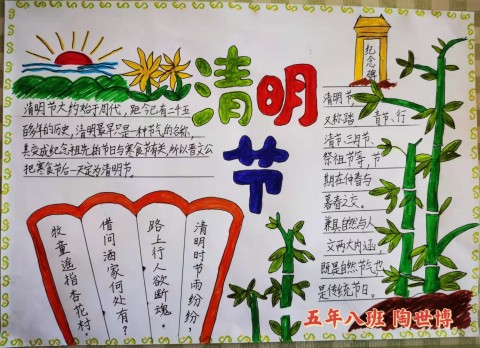 清明节
清明节大约始于周代,距今已有二千五
百多年的历史,清明最早是一种节气的名称,
其变成纪念祖先的节日与寒食节有关,所以晋文公
把寒食节后一天定为清明节。
纪念碑
清明节
又称踏青节、行
清节、三月节、
祭祖节等,节
期在仲春与
暮春之交,
兼具自然与人
文两大内涵
既是自然节气也
是传统节日。
清明时节雨纷纷,
路上行人欲断魂。
借问酒家何处有?
牧童遥指杏花村。
五年八班 陶世博